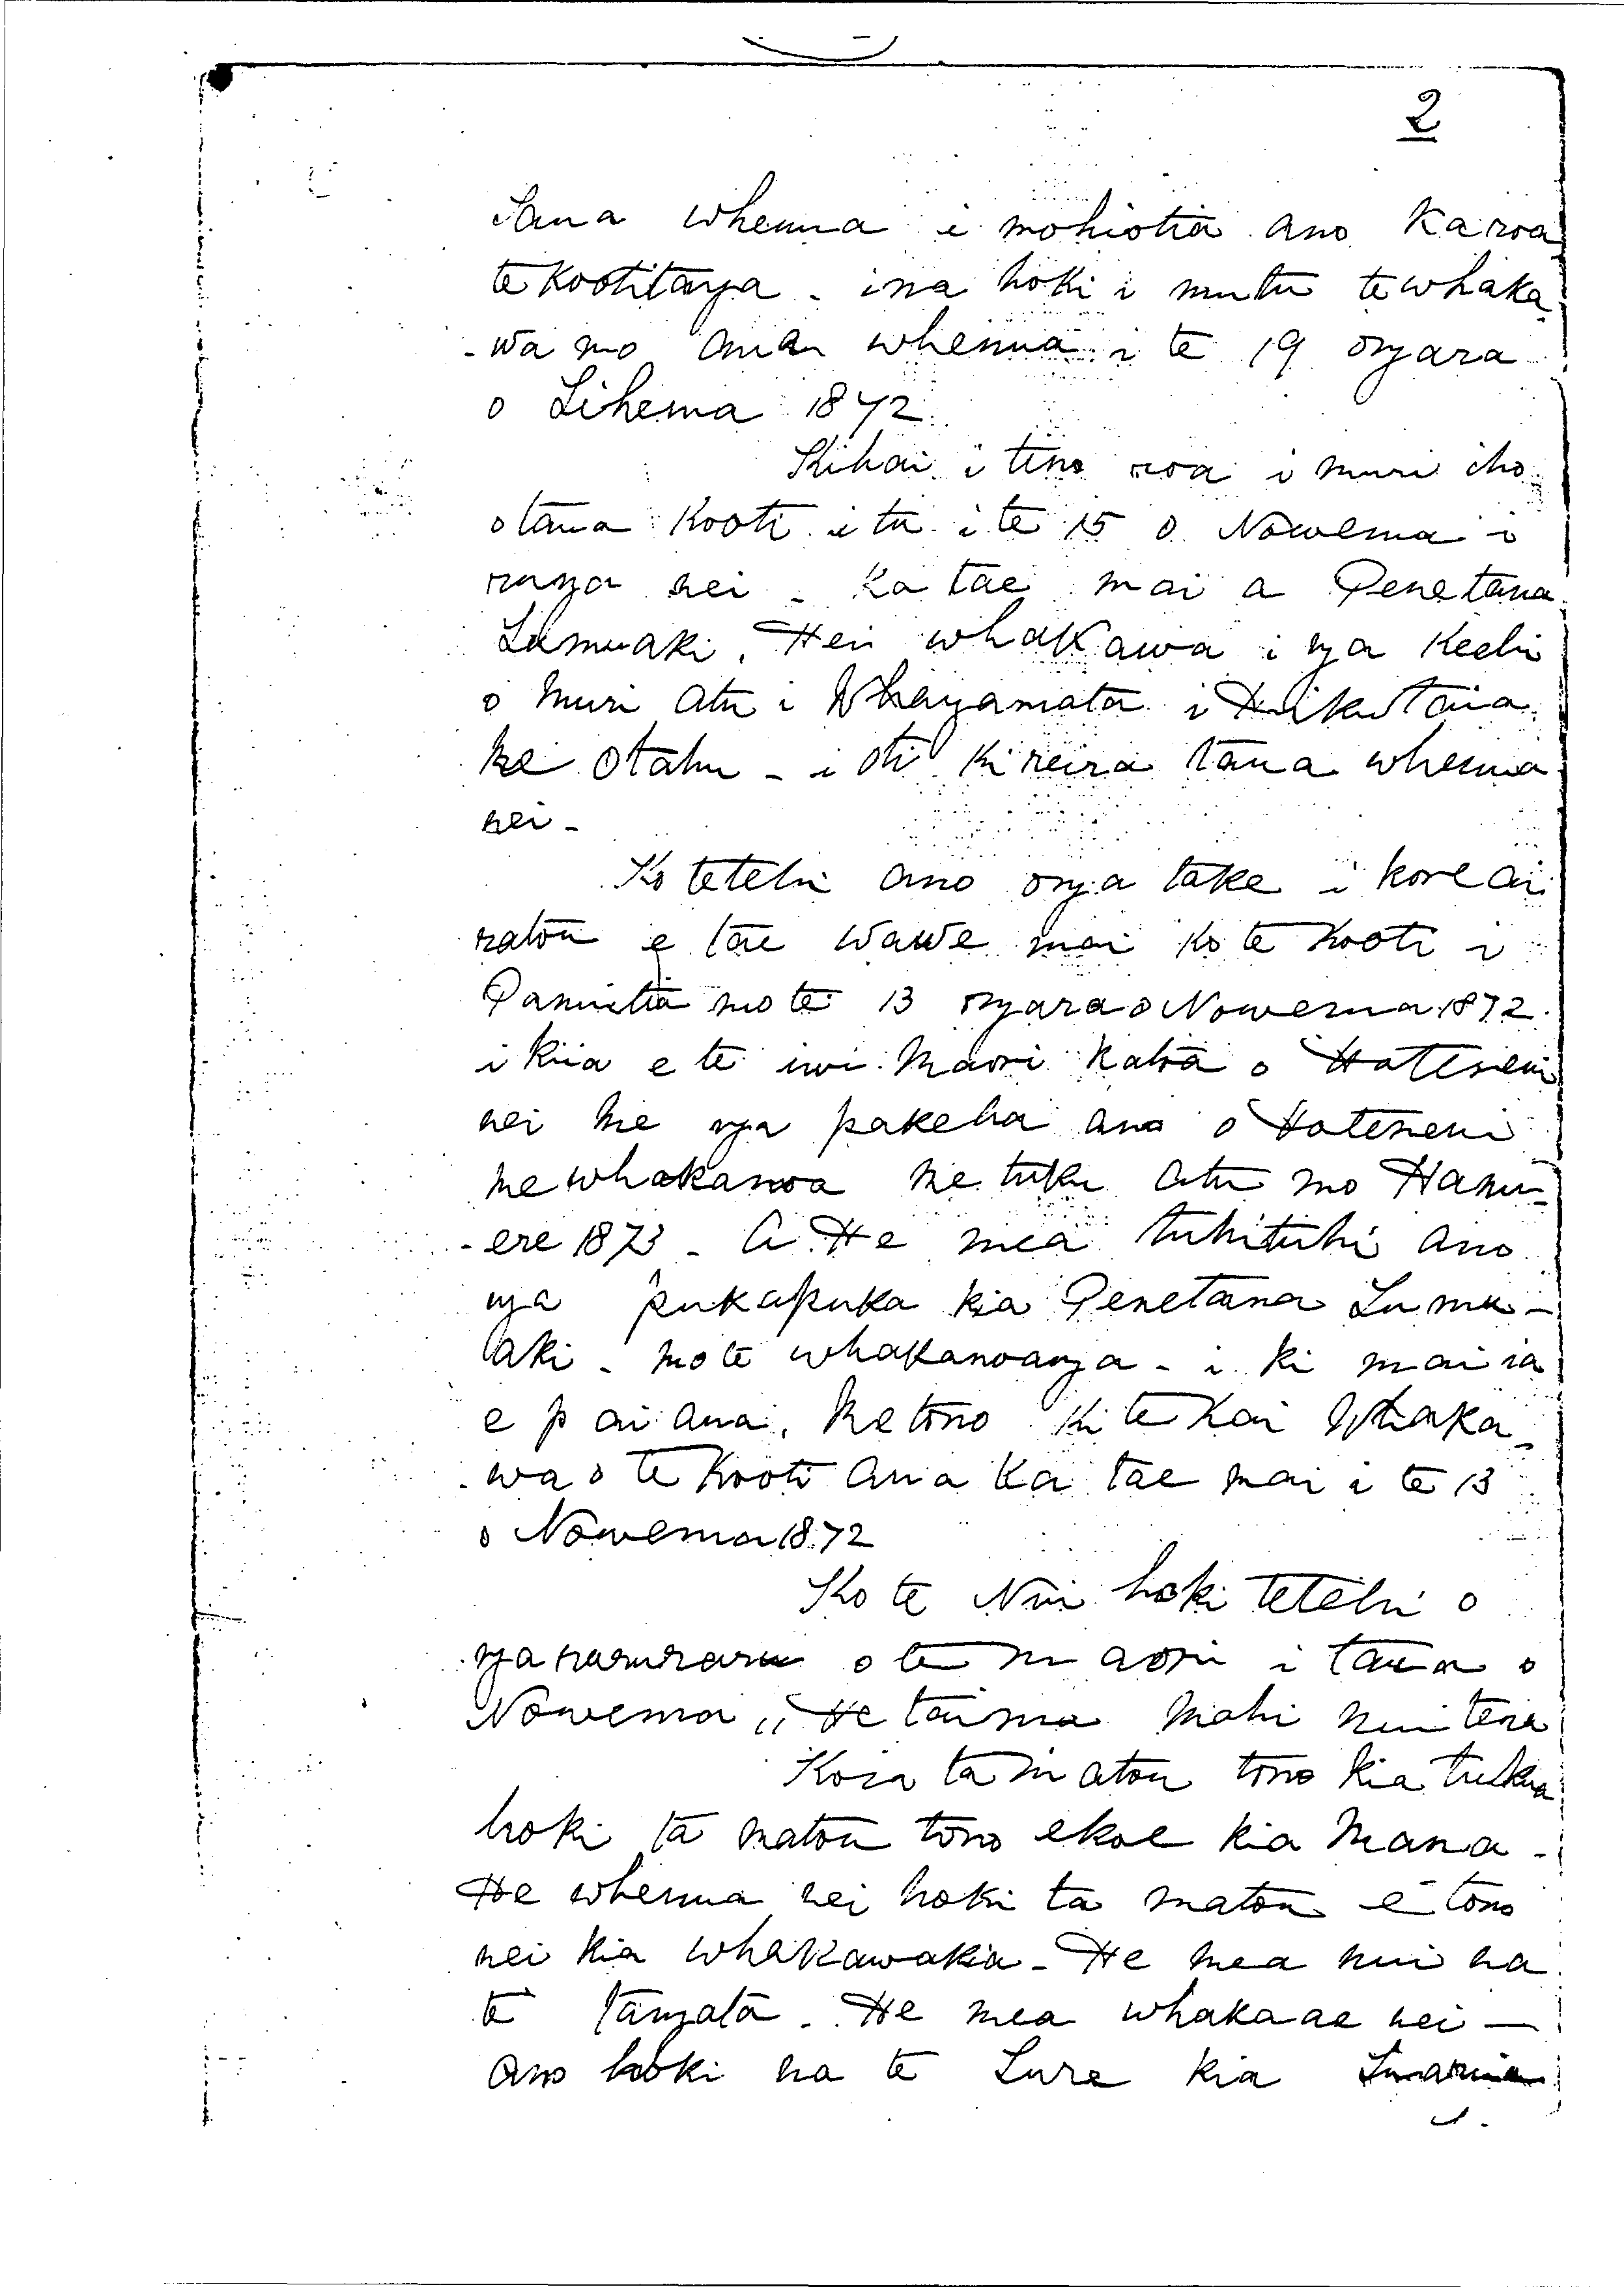 2
Taua whenua i mohiotia ano Ka roa
te kootitanga - ina hoki i mutu te whaka
-wa mo aua whenua i te 19 ongara
o Tihema 1872.
Kihai i tino roa i muri iho
o taua Kooti i tu i te 15 o Nowema i
runga nei - Ka tae mai a Penetana
Tumuaki. Hei whakawa i nga Keehi
o muri atu i Whangamata i Hikutaia
ki Otahu - i oti ki reira taua whenua
nei -
Ko tetehi ano o nga take i kore ai
ratou e tae wawe mai ko te Kooti i
Panuitia mo te 13 o ngara o Nowema 1872.
i kiia e te iwi Maori katoa o Hateseni
nei me nga pakeha ano o Hateseni
me whakanoa me tuku atu mo Hanu-
-ere 1873 - A He mea tuhituhi ano
nga pukapuka kia Penetana Tumu-
aki - mo te whakanoanga - i ki mai ia
e pai ana. Me tono ki te Kai Whaka
-wa o te Kooti ana ka tae mai i te 13
o Nowema 1872
Ko te Nui hoki tetehi o
nga raruraru o te maori i taua o
Nowema, He taima Mahi nui tena
Koia ta matou tono kia tukua
hoki ta matou tono e koe kia Mana -
He whenua nei hoki ta matou e tono
nei kia whakawakia - He mea nui na
te tangata - He mea whakaae nei -
ano hoki na te Ture kia